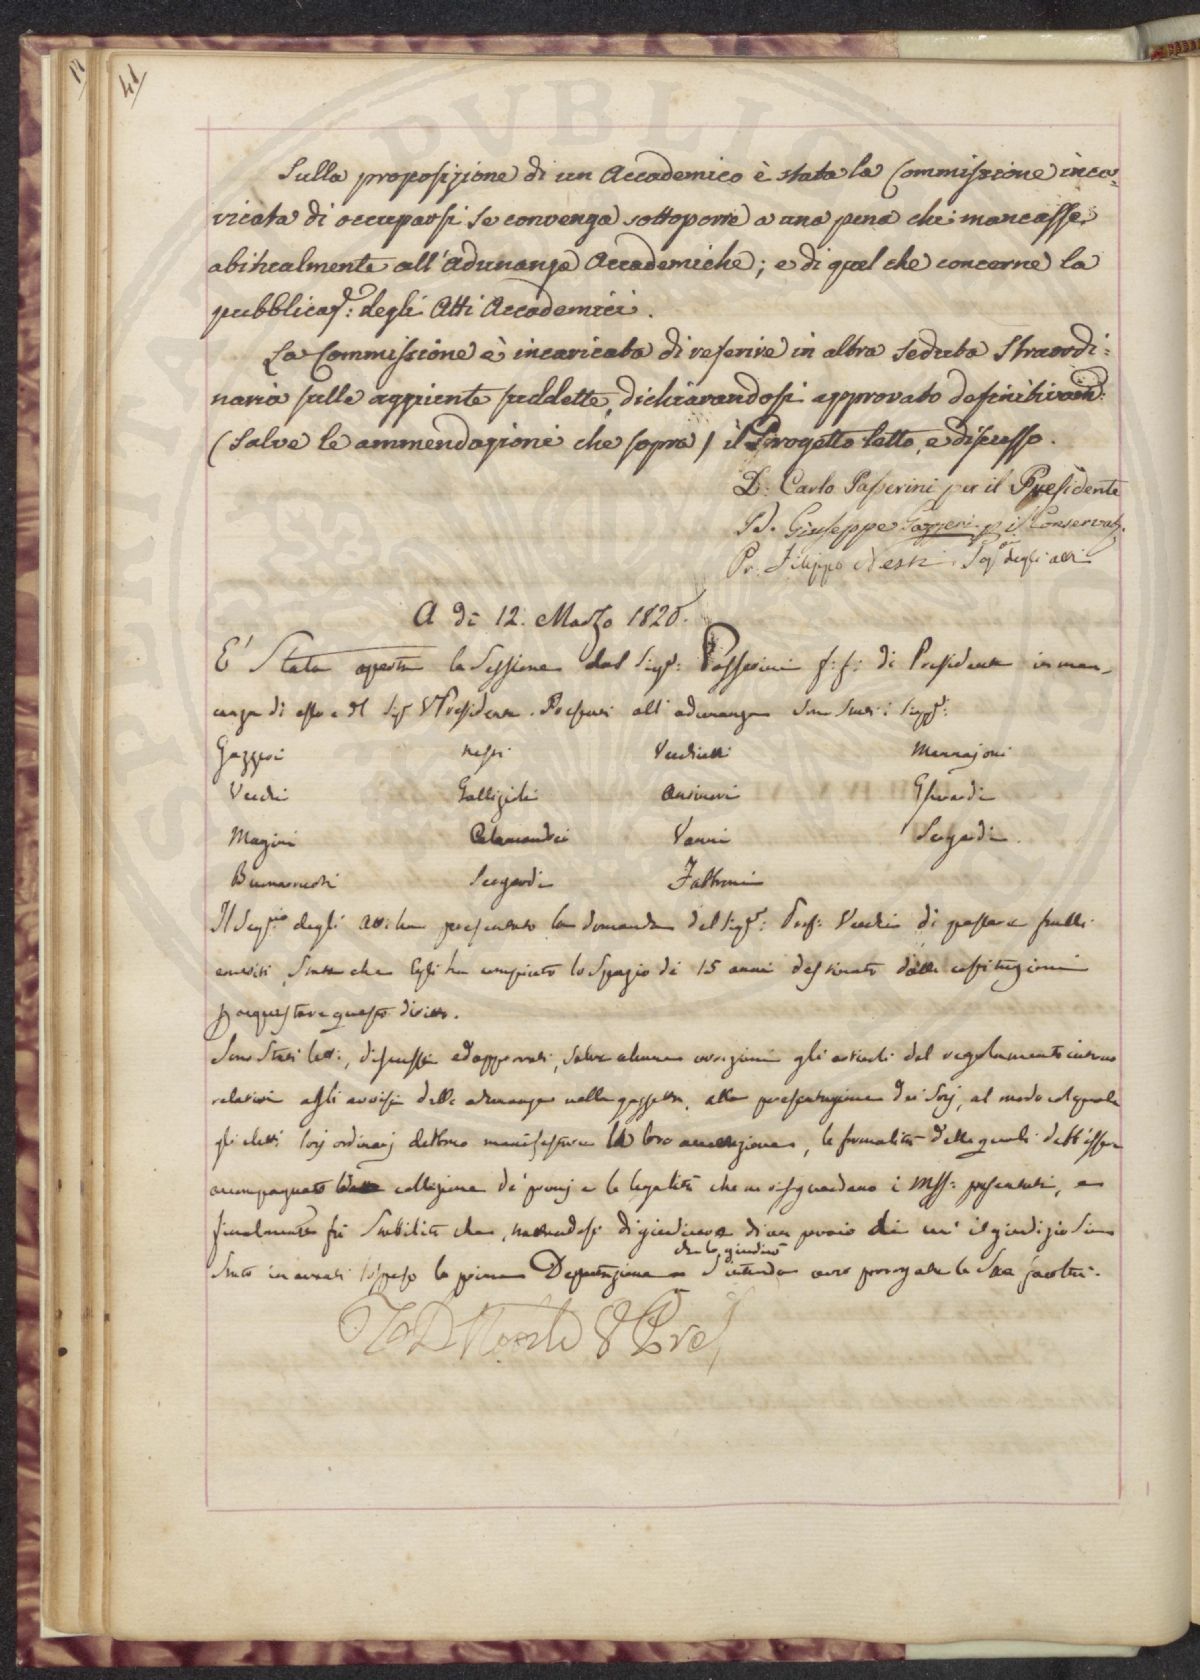 41
Sulla proposizione di un Accademico è stata la Commissione inca=
ricata di occuparsi se convenga sottoporre a una pena chi mancasse
abitualmente all'adunanze Accademiche; e di quel che concerne la
pubblicaz.e: degli Atti Accademici.
La Commissione è incaricata di referire in altra seduta Straordi=
naria sulle aggiunte suddette, dichiarandosi approvato definitivam:
(salve le ammendazioni che sopra) il Progetto letto, e discusso.
D: Carlo Passerini per il Presidente
D. Giuseppe Gazzeri p il Conservat.
Pr. Filippo Nesti Seg degli atti
A dì 12. Marzo 1820.
E' Stata aperta la Sessione dal Sigr: Passerini f:f: di Presidente in man-
canza di esso e del Sigr V.Presidente. Presenti all'adunanza sono stati i Sigri:
Gazzeri Nesti Vecchietti Menajoni
Vecchi Gallizioli Ansinori Gherardi
Magini Calamandrei Vanni Sergardi
Buonarroti Sergardi Fabbroni
Il Segr.io degli atti ha presentato la domanda del Sigr: Prof: Vecchi di passare fralli
emeriti, stante che Egli ha compiuto lo Spazio di 15 anni destinato dalle costituzioni
p acquistare questo diritto.
Sono Stati letti, discussi ed approvati, salve alcune correzioni gli articoli del regolamento interno
relativi agli avvisi delle adunanze nella gazzetta, alla presentazione dei Socj, al modo col quale
gli eletti Socj ordinarj debbono manifestare la loro accettazione, le formalità delle quali debb'essere
accompagnata la collazione de' premj e le legalità che risguardano i MSS: presentati, e
finalmente fu Stabilito che, trattandosi di giudicare di un premio di cui il giudizio Sia
Stato in avanti Sospeso la prima Deputazione che lo giudicò S'intenda aver prorogate le Sue facoltà.